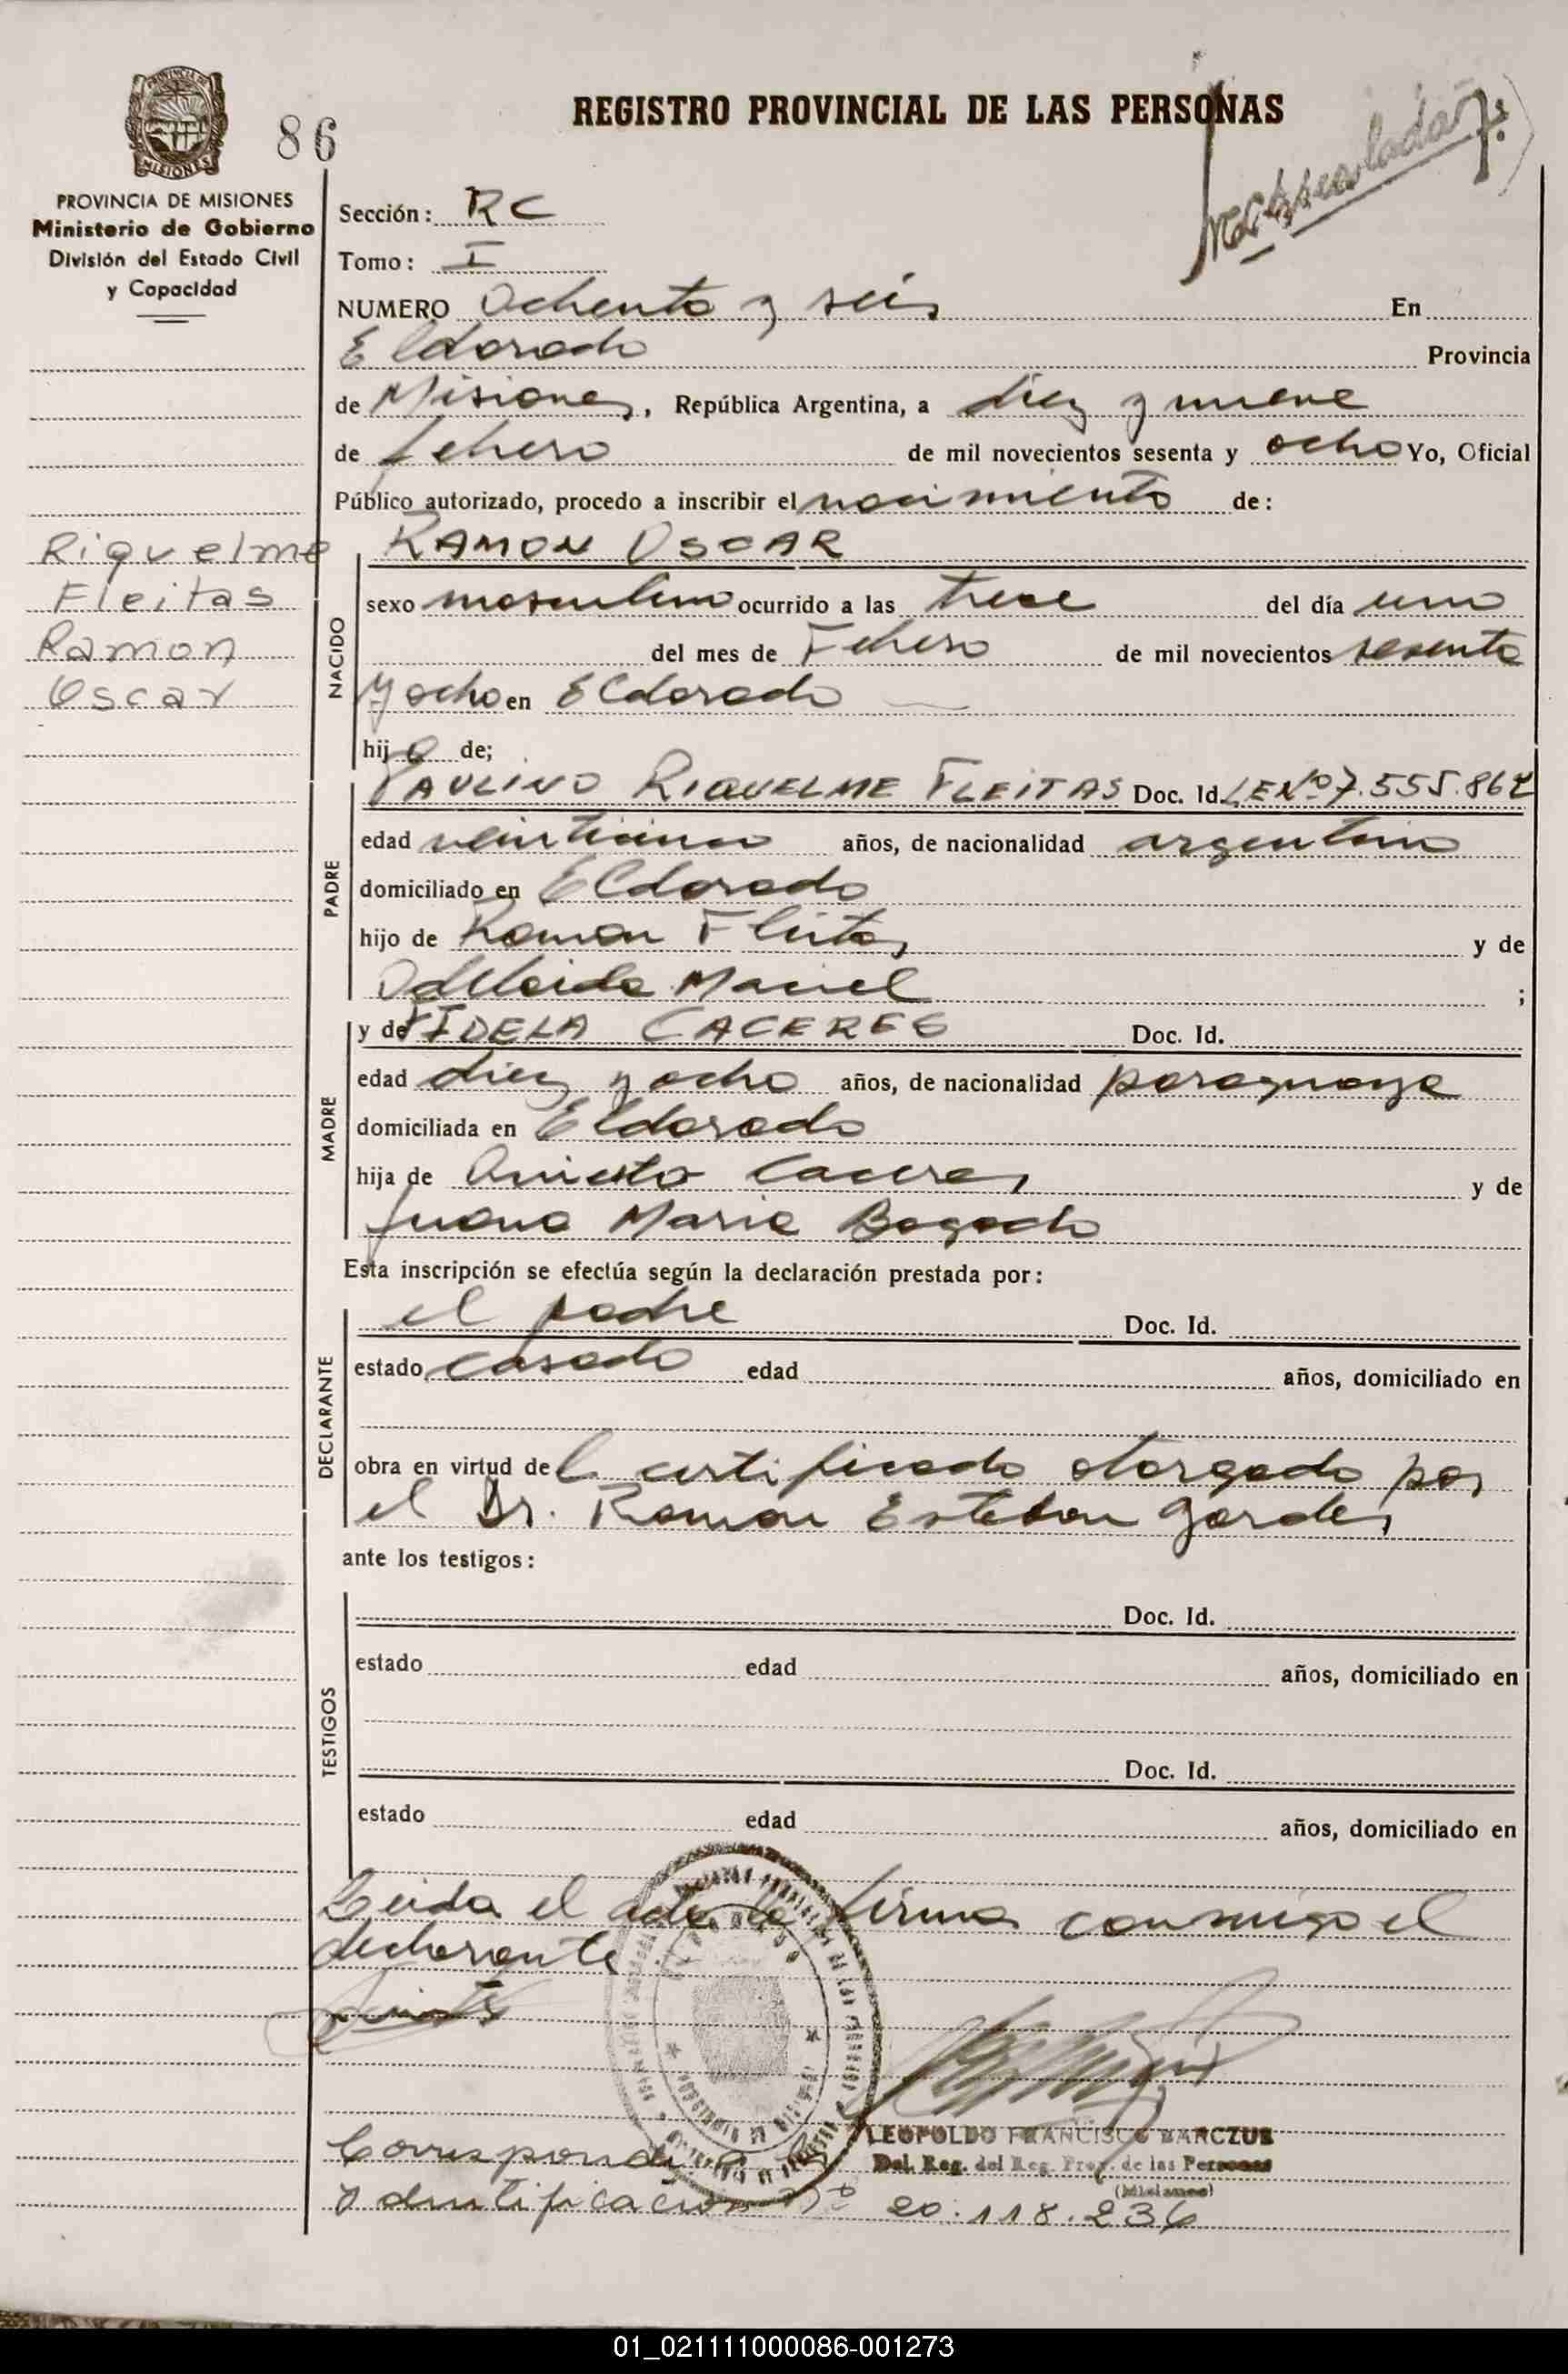 PROVINCIA DE MISIONES
86
REGISTRO PROVINCIAL DE LAS PERSONAS
PROVINCIA DE MISIONES
Ministerio de Gobierno
División del Estado Civil
y Capacidad
Sección: RC
Tomo: I
NUMERO Ochenta y seis En
Eldorado Provincia
de Misiones, República Argentina, a diez y nueve
de febrero de mil novecientos sesenta y ocho Yo, Oficial
Público autorizado, procedo a inscribir el nacimiento de:
Riquelme
Fleitas
Ramon
Oscar
NACIDO
RAMON OSCAR
sexo masculino ocurrido a las trece del día uno
del mes de Febrero de mil novecientos sesenta
y ocho en Eldorado
hijo de;
PADRE
PAULINO RIQUELME FLEITAS Doc. Id. LE Nº 7.555.862
edad veinticinco años, de nacionalidad argentino
domiciliado en Eldorado
hijo de Ramon Fleitas y de
Odelaida Maciel ;
MADRE
y de FIDELA CACERES Doc. Id.
edad diez y ocho años, de nacionalidad paraguaya
domiciliada en Eldorado
hija de Aniceto Caceres y de
Juana Maria Bogado
Esta inscripción se efectúa según la declaración prestada por:
DECLARANTE
el padre Doc. Id.
estado casado edad años, domiciliado en
obra en virtud del certificado otorgado por
el Dr. Ramon Esteban Gardes
ante los testigos:
TESTIGOS
Doc. Id.
estado edad años, domiciliado en
Doc. Id.
estado edad años, domiciliado en
Leida el acta la firma conmigo el
declarante
LEOPOLDO FRANCISCO BARCZUK
Del. Reg. del Reg. Prov. de las Personas
(Misiones)
Corresponde a la
Ydentificacion Nº 20.118.236
01_021111000086-001273